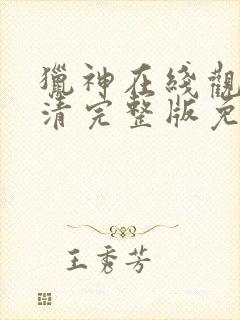 獵神在綫觀
清完整版免
王秀芳